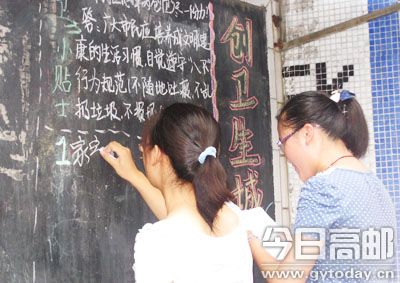 小贴士
广大市民应培养成文明健
康的生活习惯,自觉遵守“八不”
行为规范(不随地吐痰、不乱
扔垃圾、不
1家
创卫生城
今日高邮
www.gytoday.cn